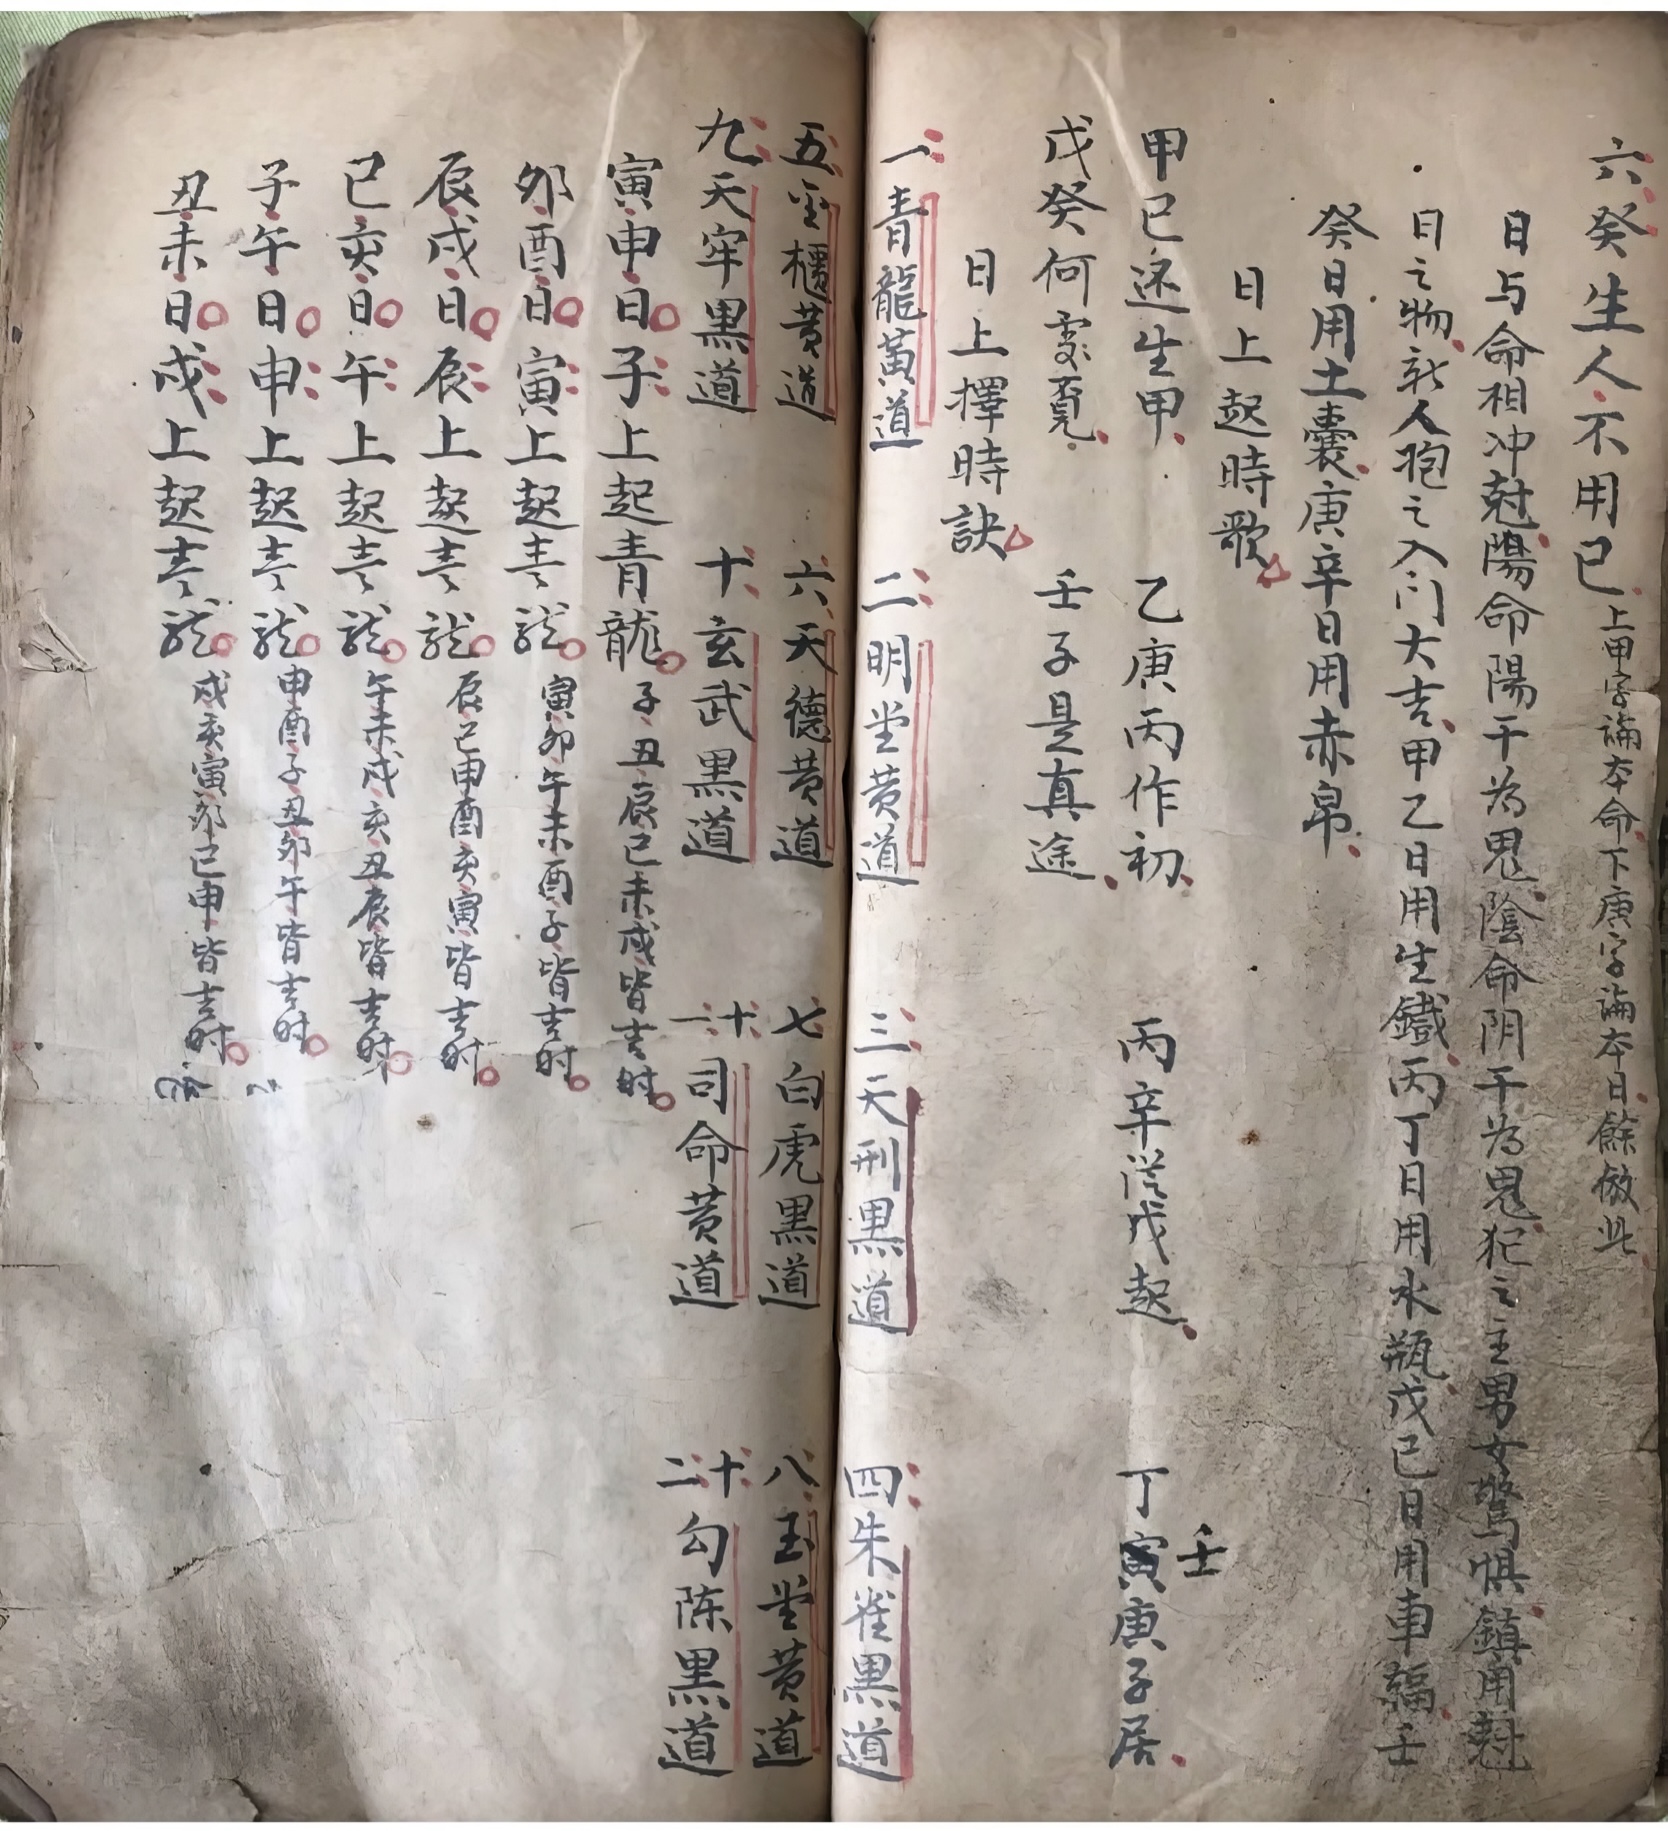 六癸生人不用己上甲字論本命下庚字論本日餘倣此
日与命相冲尅陽命陽干為鬼陰命阴干為鬼犯之主男女驚惧鎮用尅
日之物新人抱之入门大吉甲乙日用生鐵丙丁日用水瓶戊己日用車輻壬
癸日用土囊庚辛日用赤帛
日上起時歌
甲己还生甲 乙庚丙作初 丙辛從戊起 丁壬庚子居
戊癸何處覓 壬子是真途
日上擇時訣
一青龍黃道 二明堂黄道 三天刑黑道 四朱雀黑道
五金櫃黄道 六天德黄道 七白虎黑道 八玉堂黄道
九天牢黑道 十玄武黑道 十一司命黄道 十二勾陈黑道
寅申日子上起青龍子丑辰巳未戌皆吉时
卯酉日寅上起青龙寅卯午未酉子皆吉时
辰戌日辰上起青龙辰巳申酉亥寅皆吉时
巳亥日午上起青龙午未戌亥丑辰皆吉时
子午日申上起青龙申酉子丑卯午皆吉时
丑未日戌上起青龙戌亥寅卯巳申皆吉时